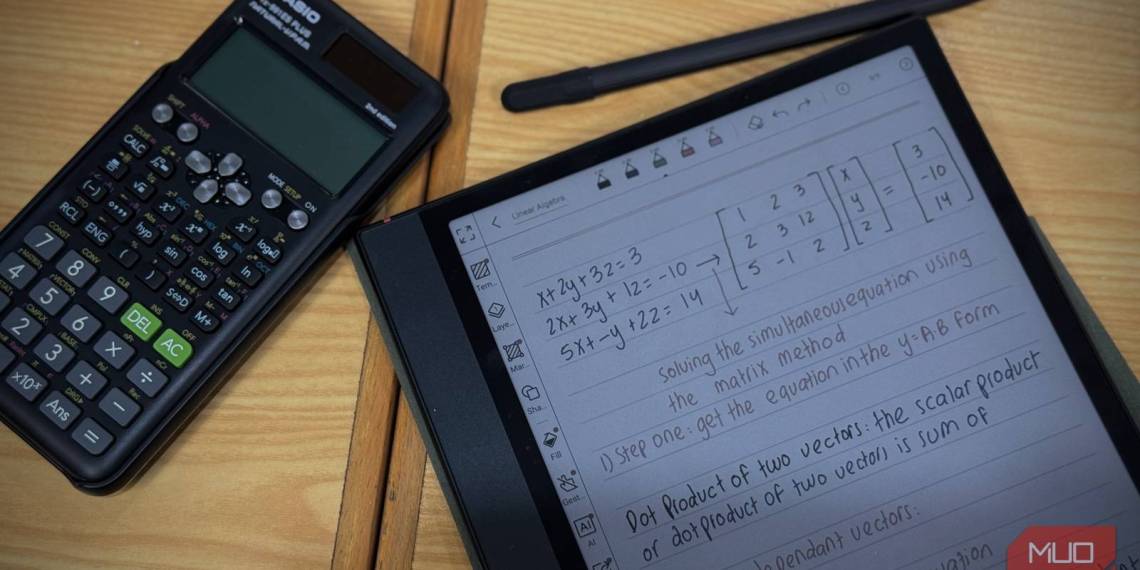 CASIO
2nd edition
SHIFT
ALPHA
MODE SETUP ON
SOLVE
CALC
(−)
hyp
sin
cos
tan
log
ln
RCL
ENG
(
)
S⇔D
M+
7
8
9
DEL
AC
4
5
6
×
÷
2
3
+
−
×10ˣ
Ans
=
Linear Algebra
Tem...
Laye...
Mar...
Sha...
Fill
Gest...
AI
AI
x+2y+3z=3
2x+3y+12=-10 →
5x+-y+2z=14
1 2 3
2 3 12
5 -1 2
x
y
z
=
3
-10
14
solving the simultaneous equation using
the matrix method
1) Step one: get the equation in the y=A·B form
Dot Product of two vectors: the scalar product
or dot product of two vectors is sum of
pendant vectors:
MUO